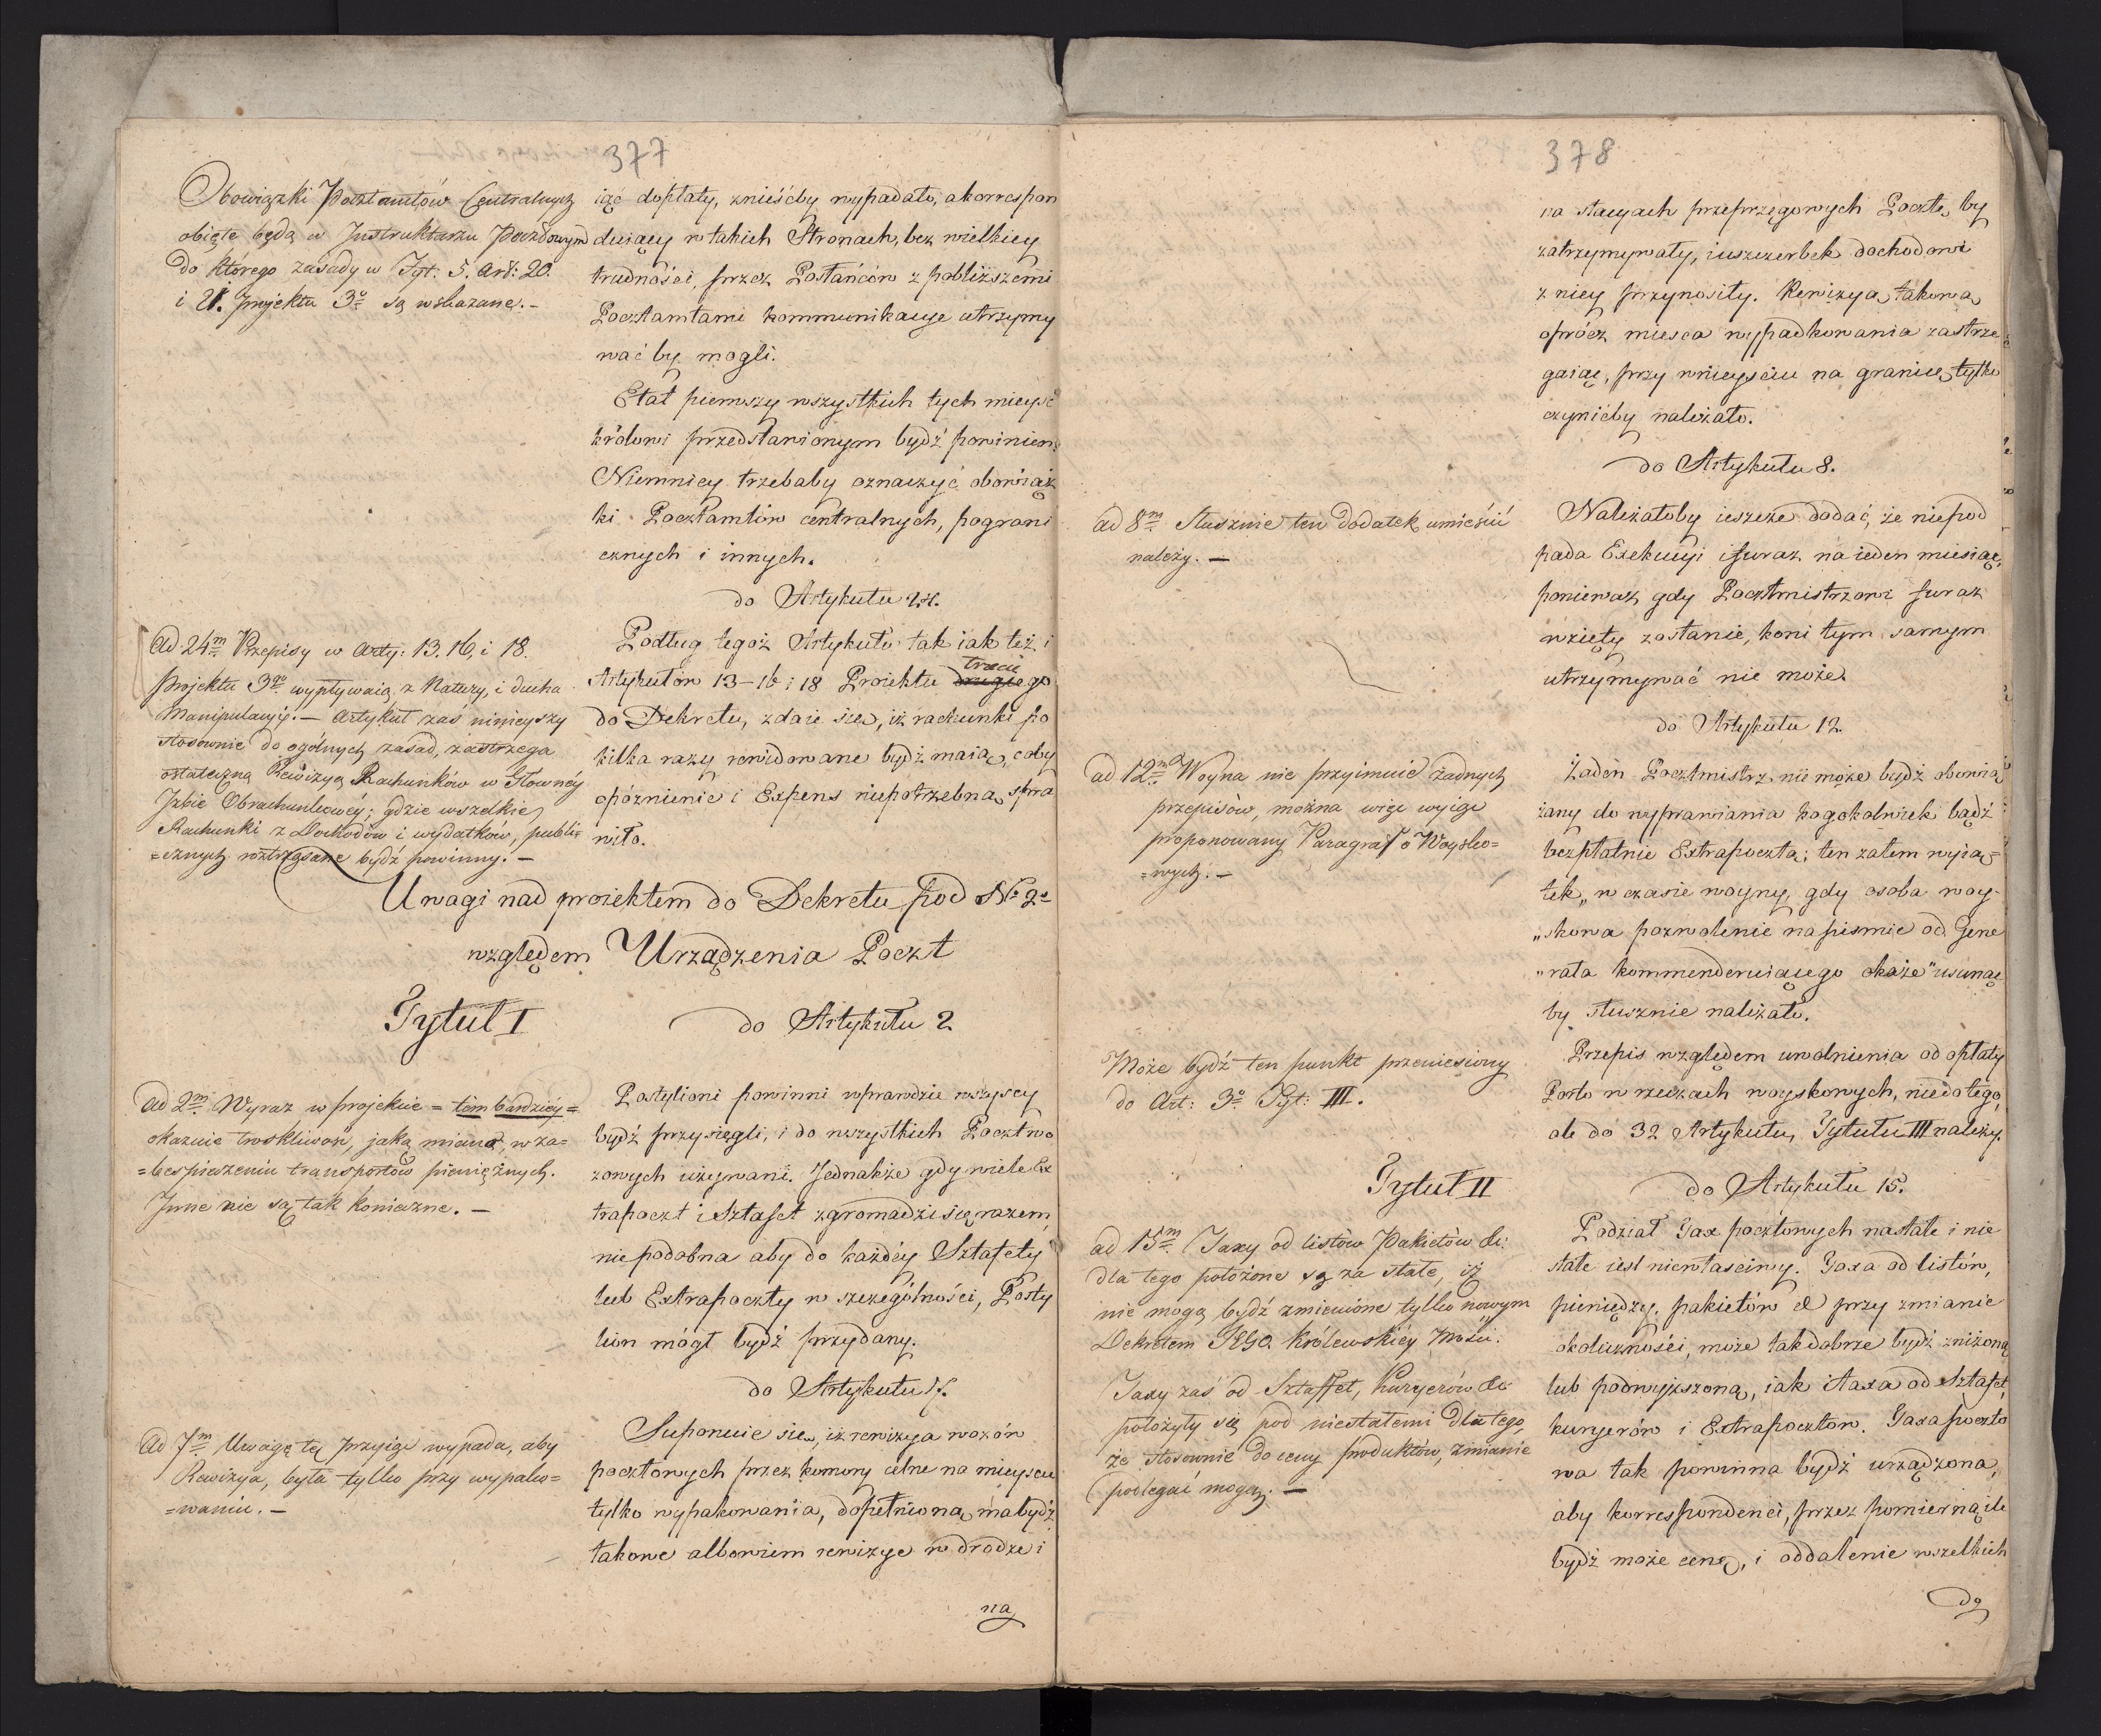 377
Obowiązki Pocztamtów Centralnych
obięte będą w Instruktarzu Pocztowym
do którego zasady w Tyt: 5. Art: 20.
i 21. projektu 3º są wskazane. –
iąć dopłaty, znieśćby wypadało, a korrespon
duiący w takich Stronach, bez wielkiey
trudności, przez Posłańców z pobliższemi
Pocztamtami kommunikacye utrzymy
wać by mogli.
Etat pierwszy wszystkich tych mieysc
królowi przedstawionym bydź powinien
Niemniey trzebaby oznaczyć obowiąz
ki Pocztamtów centralnych, pograni
cznych i innych.
do Artykułu 24.
ad 24m Przepisy w Arty: 13. 16, i 18.
projektu 3go wypływaią z Natury, i ducha
Manipulacyi. – Artykuł zaś ninieyszy
stosownie do ogólnych zasad, zastrzega
ostateczną Rewizyą Rachunków w Głównéy
Izbie Obrachunkowey; gdzie wszelkie
Rachunki z Dochodów i wydatków, publi=
=cznych roztrząsane bydź powinny. –
Podług tegoż Artykułu tak iak też i
trzeci
Artykułów 13–16 i 18 Proiektu drugiego
do Dekretu, zdaie się, iż rachunki po
kilka razy rewidowane bydź maią, coby
opóznienie i Expens niepotrzebną spra
wiło.
Uwagi nad proiektem do Dekretu pod Nº 2º
względem Urządzenia Poczt
Tytuł I
do Artykułu 2
ad 2m Wyraz w projekcie = tém bardziéy =
okazuie troskliwość, jaką miano, w za=
=bespieczeniu transportów pieniężnych.
Inne nie są tak konieczne. –
Postylioni powinni wprawdzie wszyscy
bydź przysięgli, i do wszystkich Pocztwo
zowych używani. Jednakże gdy wiele Ex
trapoczt i Sztafet zgromadzi się razem
nie podobna aby do każdéy Sztafety
lub Extrapoczty w szczególności, Posty
lion mógł bydź przydany.
do Artykułu 7.
ad 7m Uwagę tę przyiąć wypada, aby
Rewizya, była tylko przy wypako=
=waniu. –
Suponuie się, iż rewizya wozów
pocztowych przez komory celne na mieyscu
tylko wypakowania, dopełnioną ma bydź
takowe albowiem rewizye w drodze i
na
378
na stacyach przeprzęgowych Pocztę by
zatrzymywały, i uszczerbek dochodowi
z niey przynosiły. Rewizya takowa
oprócz mieysca wypadkowania zastrze
gaiąc, przy wnieyściu na granice tylko
czynićby należało.
do Artykułu 8.
ad 8m Słusznie ten dodatek umieścić
należy. –
Należałoby ieszcze dodać, że niepod
pada Exekucyi i furaz na ieden miesiąc,
ponieważ gdy Pocztmistrzowi furaz
wzięty zostanie, koni tym samym
utrzymywać nie może.
do Artykułu 12.
ad 12m Woyna nie przyimuie żadnych
przepisów, można więc wyiąć
proponowany Paragraf o Woysko=
=wych. –
Żaden Pocztmistrz nie może bydź obowią
zany do wyprawiania kogokolwiek bądź
bezpłatnie Extrapocztą; ten zatem wyią=
tek „w czasie woyny, gdy osoba woy-
„skowa pozwolenie na pismie od Gene
„rała kommenderuiącego okaże" usunąć
by słusznie należało.
Może bydź ten punkt przeniesiony
do Art: 3º Tyt: III.
Przepis względem uwolnienia od opłaty
Porto w rzeczach woyskowych, nie do tego,
ale do 32 Artykułu, Tytułu III należy.
Tytuł II
do Artykułu 15.
ad 15m Taxy od listów Pakietów &:
dla tego położone są za stałe, iż
nie mogą bydź zmienione tylko nowym
Dekretem JEGO Królewskiéy Mości.
Taxy zaś od Sztaffet, Kuryerów &:
położyły się pod niestałemi dla tego,
że stosownie do ceny produktów, zmianie
podlegać mogą. –
Podział Tax pocztowych na stałe i nie
stałe iest niewłasciwy. Taxa od listów,
pieniędzy, pakietów et przy zmianie
okoliczności, może tak dobrze bydź zniżoną
lub podwyższoną, iak i taxa od Sztafet,
kuryerów i Extrapocztow. Taxa poczto
wa tak powinna bydź urządzona,
aby korrespondenci, przez pomierną ile
bydź może cenę, i oddalenie wszelkich
do